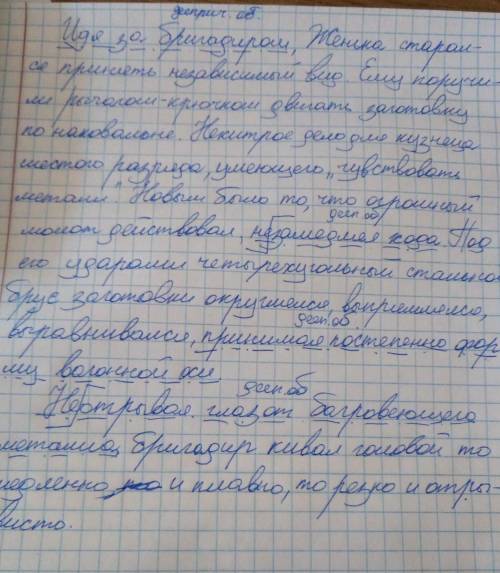 дееприч. об.
Идя за бригадиром, Женька старал-
ся принять независимый вид. Ему поручи-
ли рычагом-крючком двигать заготовку
по наковальне. Нехитрое дело для кузнеца
шестого разряда, умеющего „чувствовать
металл". Новым было то, что огромный
дееп.об
молот действовал, не замедляя хода. Под
его ударами четырехугольный стально
брус заготовки округлялся, выпрямлялся,
дееп.об.
выравнивался, принимая постепенно фор
му вагонной оси.
дееп.об
Не отрывая глаз от багровеющего
металла, бригадир кивал головой то
медленно и плавно, то резко и отры-
висто.